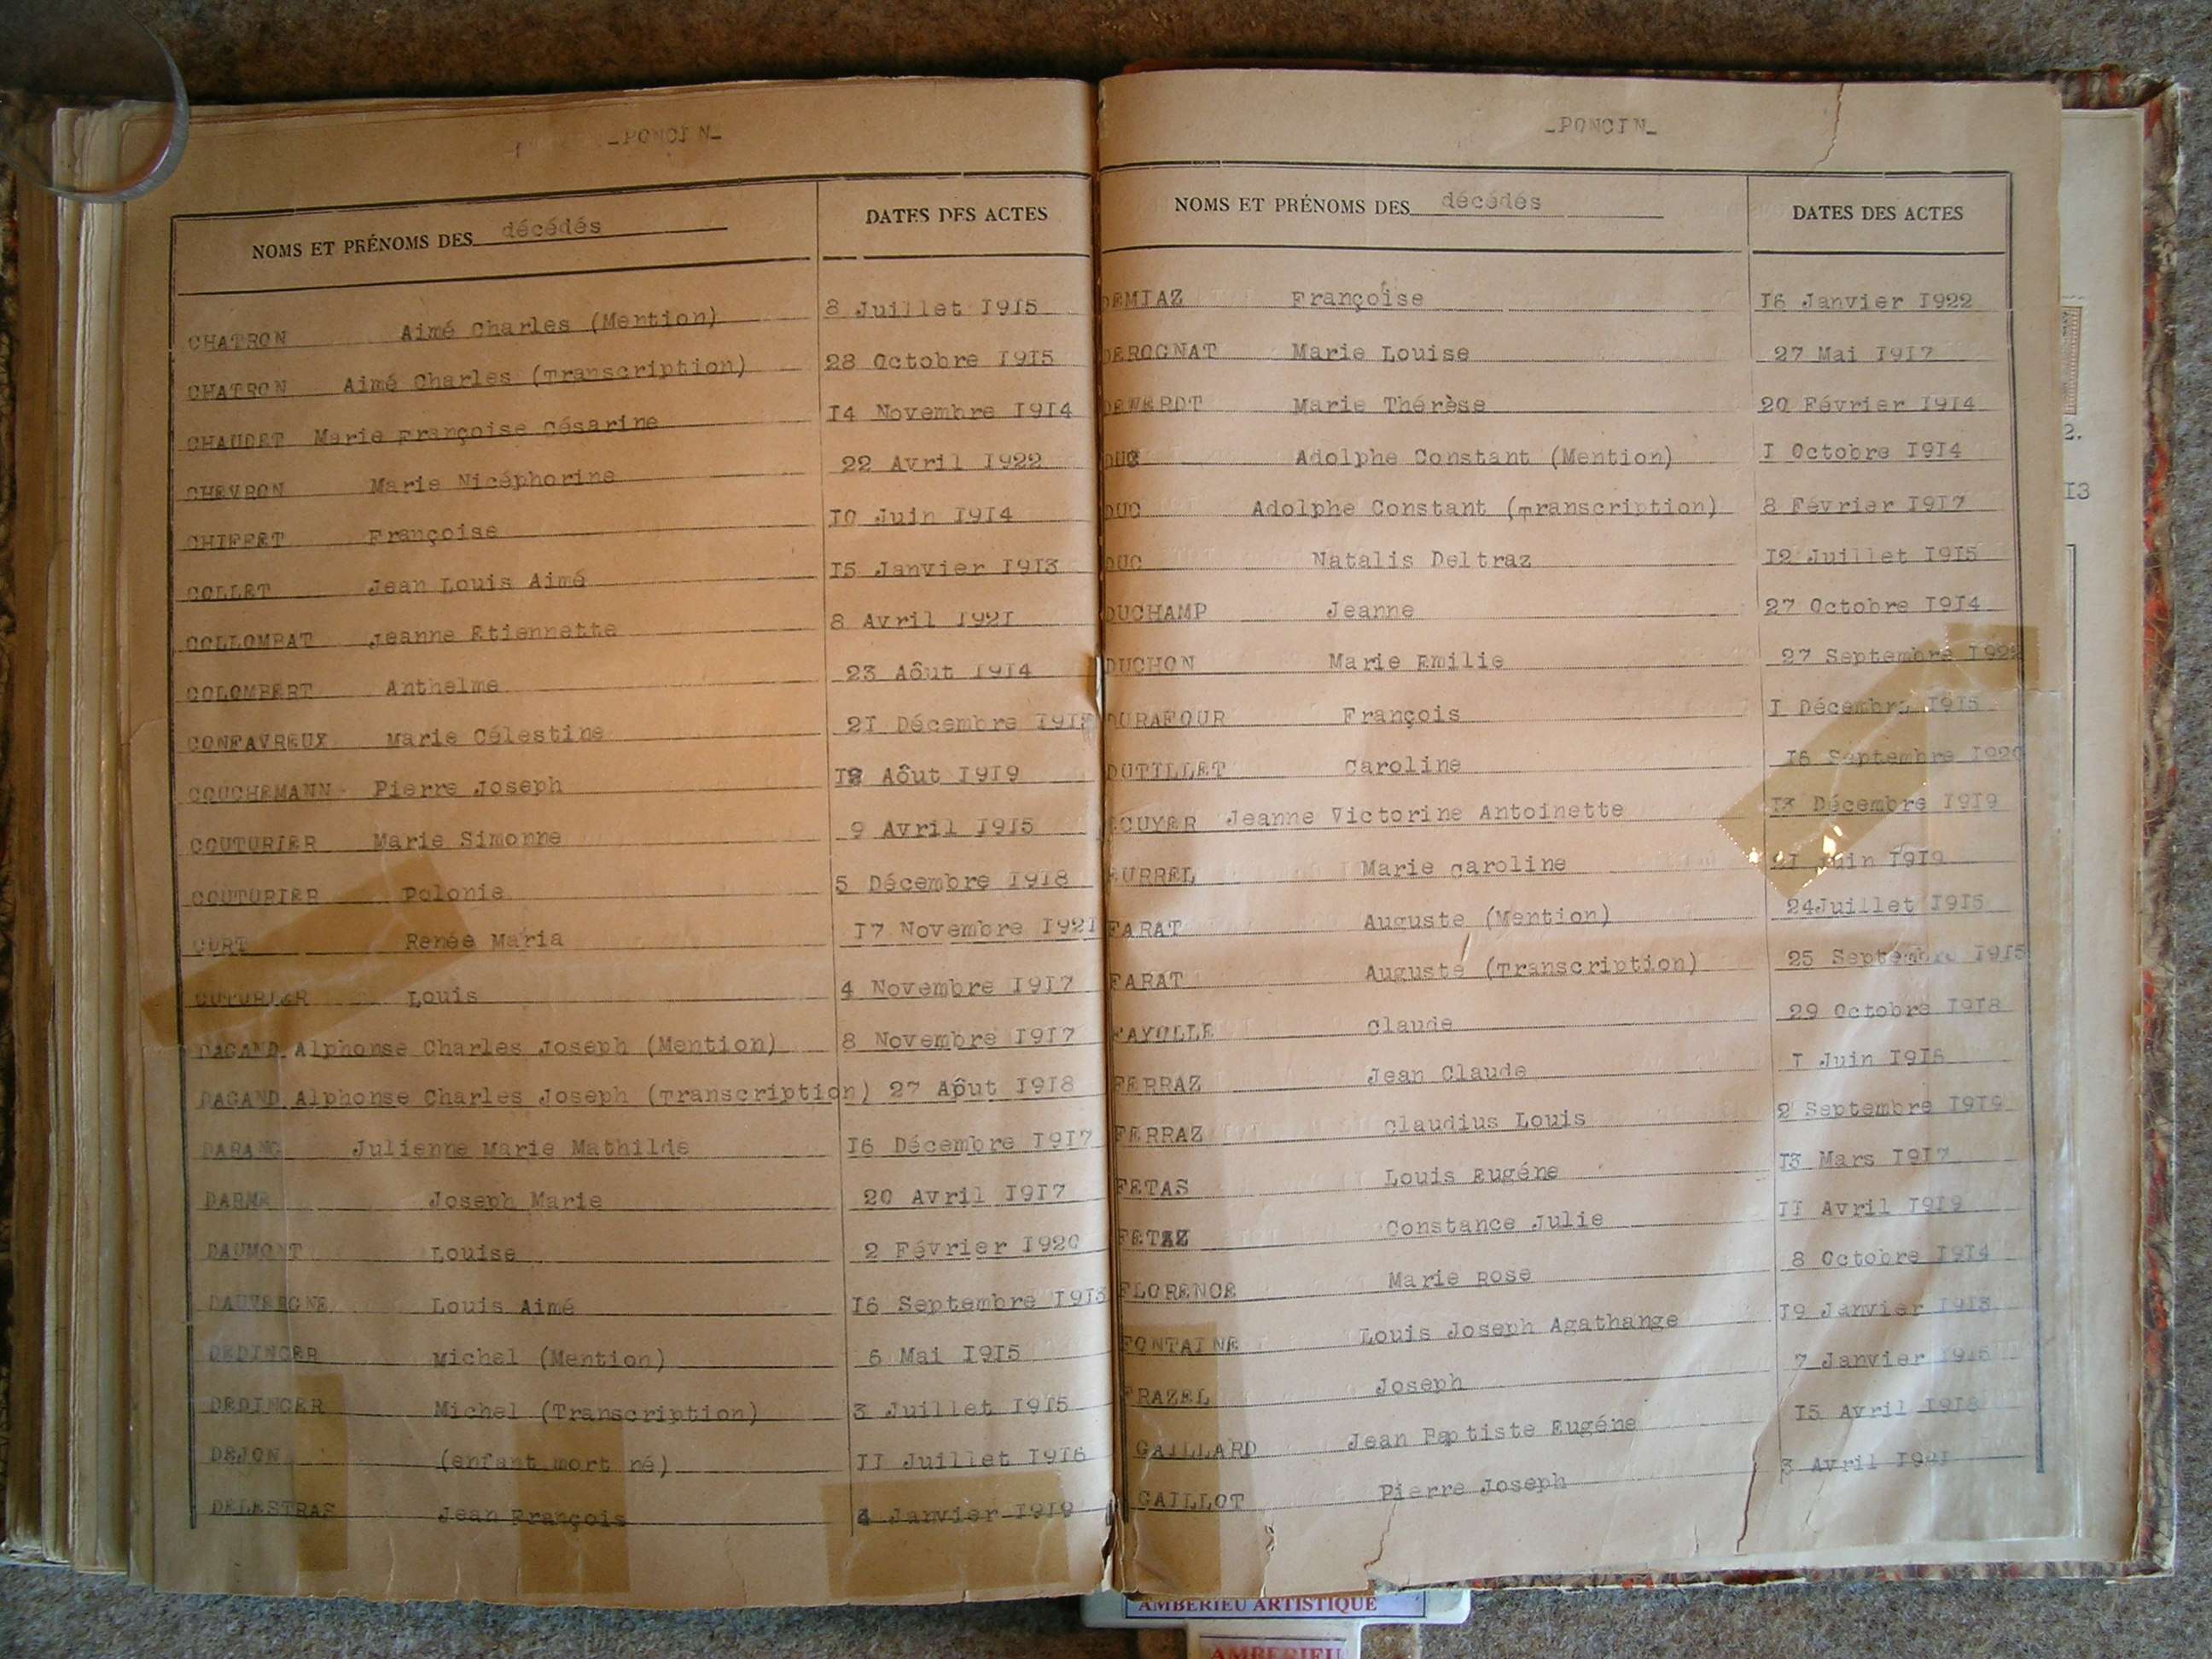 -PONCIN-
NOMS ET PRÉNOMS DES décédés DATES DES ACTES
CHATRON Aimé Charles (Mention) 8 Juillet 1915
CHATRON Aimé Charles (Transcription) 28 Octobre 1915
CHAUDET Marie Françoise Césarine 14 Novembre 1914
CHEVRON Marie Nicéphorine 22 Avril 1922
CHIFFET Françoise 10 Juin 1914
COLLET Jean Louis Aimé 15 Janvier 1913
COLLOMBAT Jeanne Etiennette 8 Avril 1921
COLOMBERT Anthelme 23 Aôut 1914
CONFAVREUX Marie Célestine 21 Décembre
COUCHEMANN Pierre Joseph Aôut 1919
COUTURIER Marie Simonne 9 Avril 1915
COUTURIER Polonie 5 Décembre 1918
CURT Renée Maria 17 Novembre 1921
CUTURIER Louis 4 Novembre 1917
DAGAND Alphonse Charles Joseph (Mention) 8 Novembre 1917
DAGAND Alphonse Charles Joseph (Transcription) 27 Aôut 1918
Julienne Marie Mathilde 16 Décembre 1917
DARME Joseph Marie 20 Avril 1917
DAUMONT Louise 2 Février 1920
DAUVERGNE Louis Aimé 16 Septembre
DEDINGER Michel (Mention) 6 Mai 1915
DEDINGER Michel (Transcription) 3 Juillet 1915
DEJON (enfant mort né) 11 Juillet 1916
DELESTRAS Jean François 4 Janvier 1919
-PONCIN-
NOMS ET PRÉNOMS DES décédés DATES DES ACTES
DEMIAZ Françoise 16 Janvier 1922
DEROGNAT Marie Louise 27 Mai 1917
DEWERDT Marie Thérèse 20 Février 1914
DUC Adolphe Constant (Mention) 1 Octobre 1914
DUC Adolphe Constant (Transcription) 8 Février 1917
DUC Natalis Deltraz 12 Juillet 1915
DUCHAMP Jeanne 27 Octobre 1914
DUCHON Marie Emilie 27 Septembre
DURAFOUR François 1 Décembre 1915
DUTILLET Caroline 16 Septembre 1920
ECUYER Jeanne Victorine Antoinette 13 Décembre 1919
EURREL Marie Caroline 21 Juin 1919
FARAT Auguste (Mention) 24Juillet 1915
FARAT Auguste (Transcription) 25 Septembre 1915
FAYOLLE Claude 29 Octobre 1918
FERRAZ Jean Claude 1 Juin 1916
FERRAZ Claudius Louis 2 Septembre 1919
FETAS Louis Eugéne 13 Mars 1917
FETAZ Constance Julie 11 Avril 1919
FLORENCE Marie Rose 8 Octobre 1914
FONTAINE Louis Joseph Agathange 19 Janvier 1913
FRAZEL Joseph 7 Janvier 1916
GAILLARD Jean Baptiste Eugéne 15 Avril 1918
GAILLOT Pierre Joseph 3 Avril 1921
2.
13
AMBERIEU ARTISTIQUE
AMBERIEU